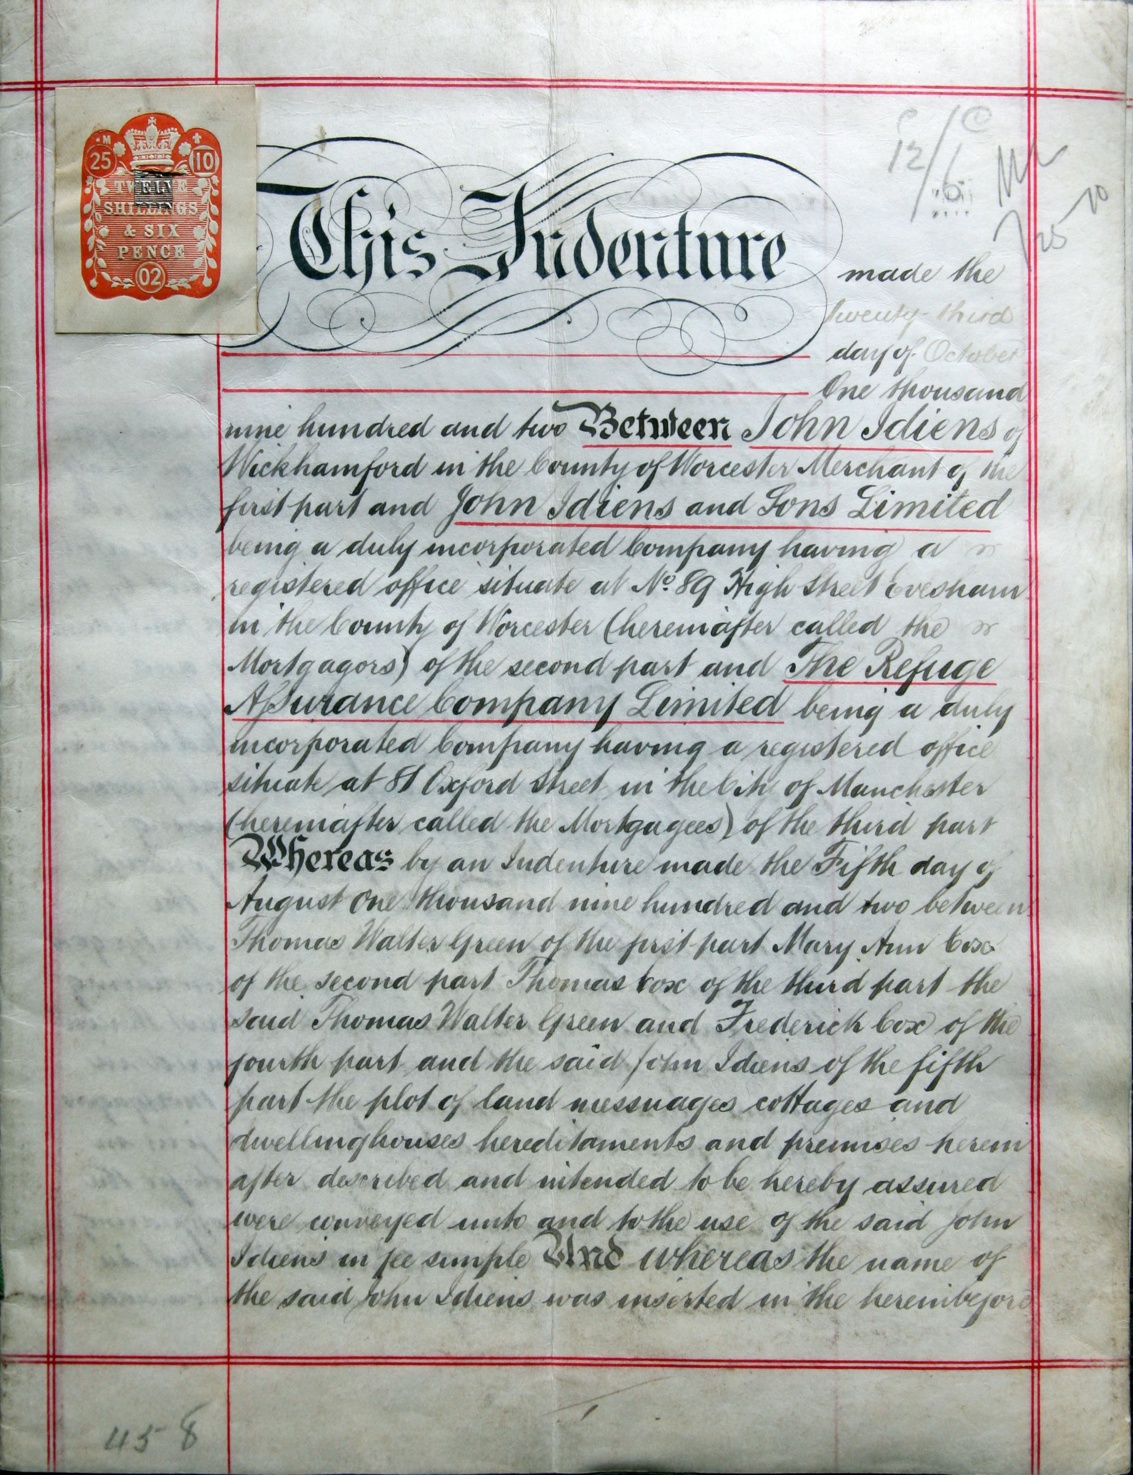 M
25 10
TWELVE
SHILLINGS
& SIX
PENCE
02
12/6
25
10
This Indenture made the
twenty third
day of October
One thousand
nine hundred and two Between John Idiens of
Wickhamford in the County of Worcester Merchant of the
first part and John Idiens and Sons Limited
being a duly incorporated Company having a
registered office situate at No. 89 High Street Evesham
in the County of Worcester (hereinafter called the
Mortgagors) of the second part and The Refuge
Assurance Company Limited being a duly
incorporated Company having a registered office
situate at 81 Oxford Street in the City of Manchester
(hereinafter called the Mortgagees) of the third part
Whereas by an Indenture made the Fifth day of
August One thousand nine hundred and two between
Thomas Walter Green of the first part Mary Ann Cox
of the second part Thomas Cox of the third part the
said Thomas Walter Green and Frederick Cox of the
fourth part and the said John Idiens of the fifth
part the plot of land messuages cottages and
dwellinghouses hereditaments and premises herein
after described and intended to be hereby assured
were conveyed unto and to the use of the said John
Idiens in fee simple And whereas the name of
the said John Idiens was inserted in the hereinbefore
458